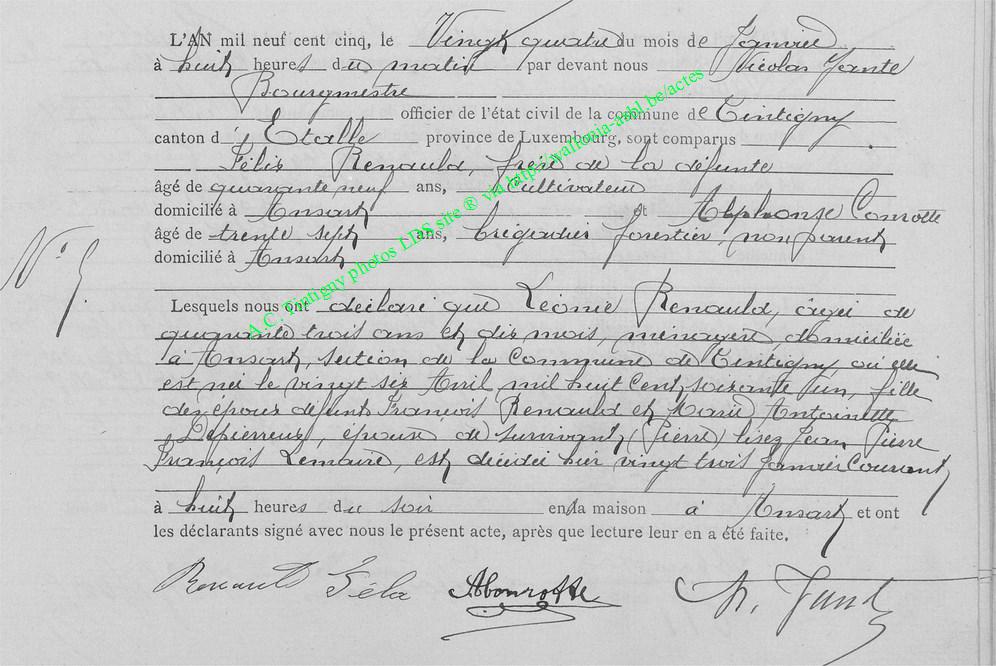 L'AN mil neuf cent cinq, le Vingt quatre du mois de Janvier
à huit heures du matin par devant nous Nicolas Jante
Bourgmestre
officier de l'état civil de la commune de Tintigny
canton d'Etalle province de Luxembourg, sont comparus
Félix Renauld, frère de la défunte
âgé de quarante neuf ans, Cultivateur
domicilié à Ansart et Alphonse Conrotte
âgé de trente sept ans, brigadier forestier, non parent
domicilié à Ansart
N° 5.
Lesquels nous ont déclaré que Léonie Renauld, âgée de
quarante trois ans et dix mois, ménagère, domiciliée
à Ansart, section de la Commune de Tintigny, où elle
est née le vingt six Avril mil huit Cent soixante un, fille
des époux défunts François Renauld et Marie Antoinette
Depierreux, épouse de survivant (Pierre) lisez Jean Pierre
François Lemaire, est décédée hier vingt trois Janvier Courant
à huit heures du soir en sa maison à Ansart et ont
les déclarants signé avec nous le présent acte, après que lecture leur en a été faite.
Renault Féla AConrotte N. Jante
A.C. Tintigny photos LDS site ® via http://wallonia-asbl.be/actes